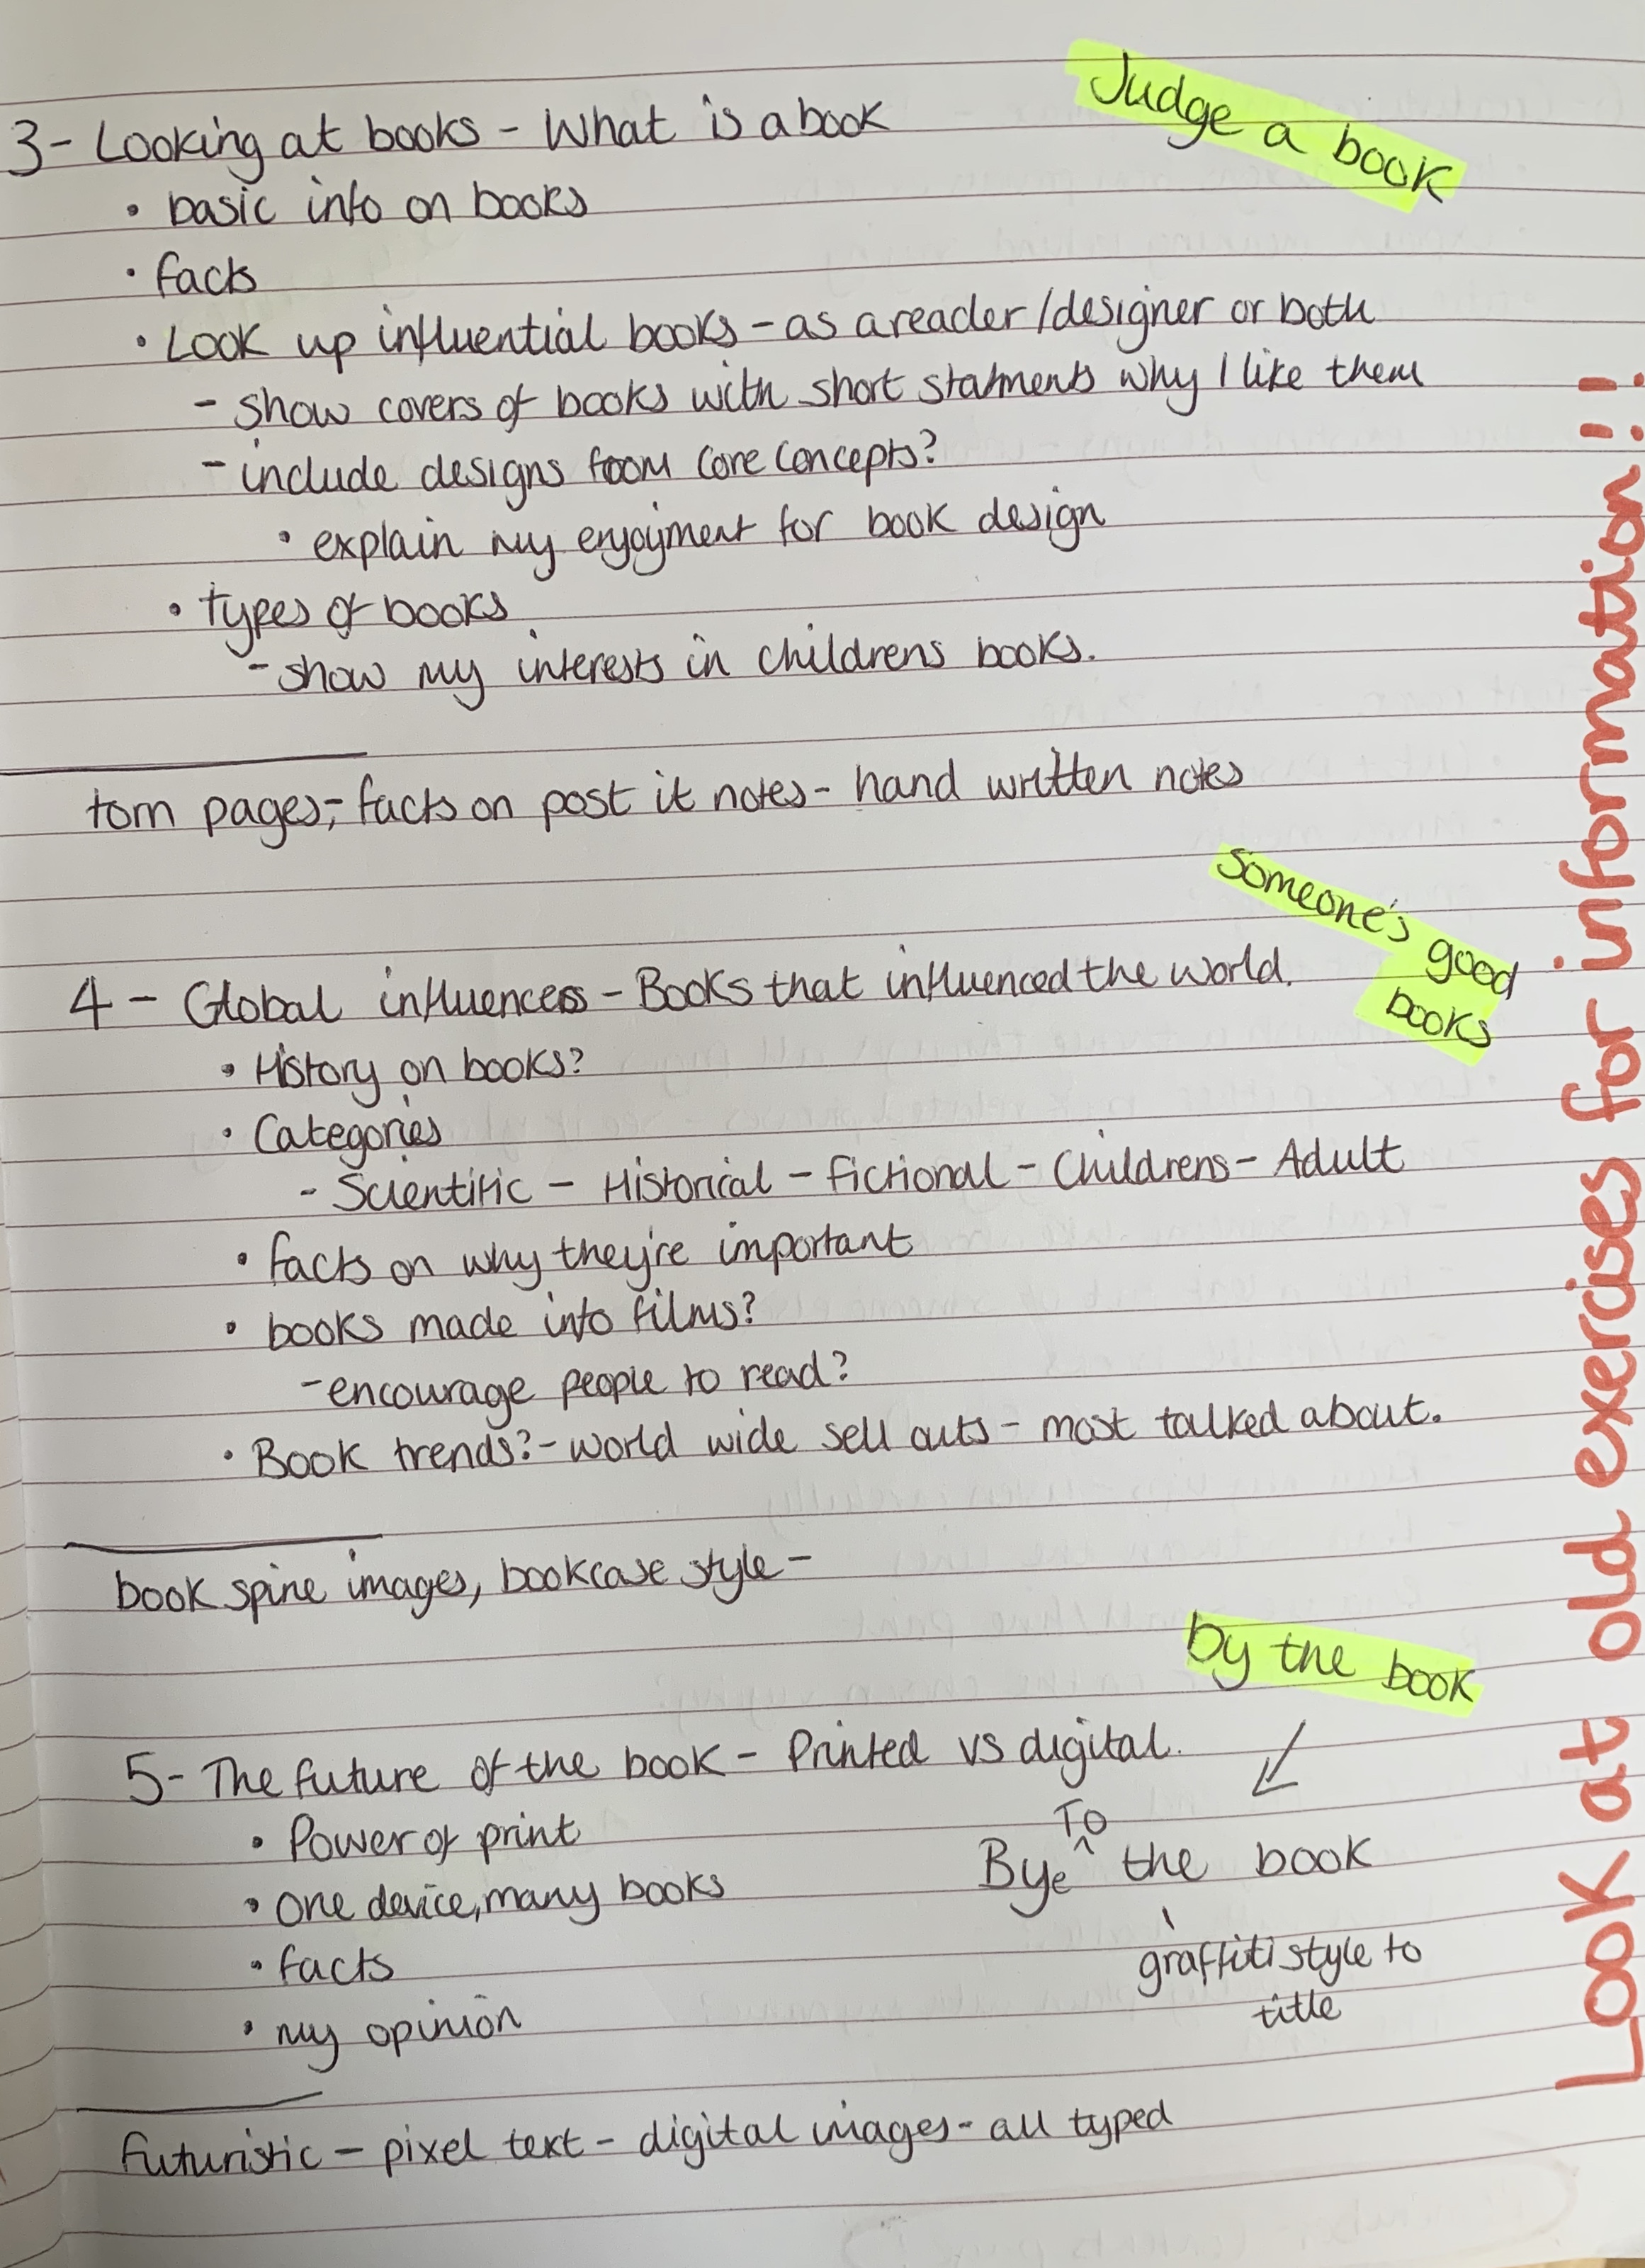 Judge a book
3 - Looking at books - What is a book
• basic info on books
• facts
• Look up influential books - as a reader/designer or both
- show covers of books with short statments why I like them
- include designs from core concepts?
• explain my enjoyment for book design
• types of books
- show my interests in childrens books.
torn pages, - facts on post it notes - hand written notes
Someone's good
books
4 - Global influences - Books that influenced the world.
• History on books?
• Categories
- Scientific - Historical - fictional - Childrens - Adult
• facts on why they're important
• books made into films?
- encourage people to read?
• Book trends? - world wide sell outs - most talked about.
book spine images, bookcase style -
by the book
5 - The future of the book - Printed vs digital.
• Power of print
• one device, many books
• facts
• my opinion
To
Bye ^ the book
graffiti style to
title
futuristic - pixel text - digital images - all typed
Look at old exercises for information!!